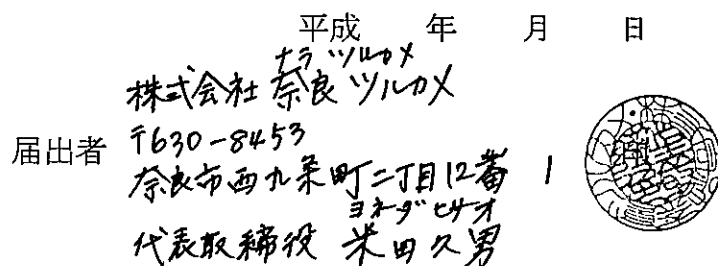 平成 年 月 日
ナラ ツルカメ
株式会社 奈良ツルカメ
届出者 〒630-8453
奈良市西九条町二丁目12番 1
ヨネダ ヒサオ
代表取締役 米田久男